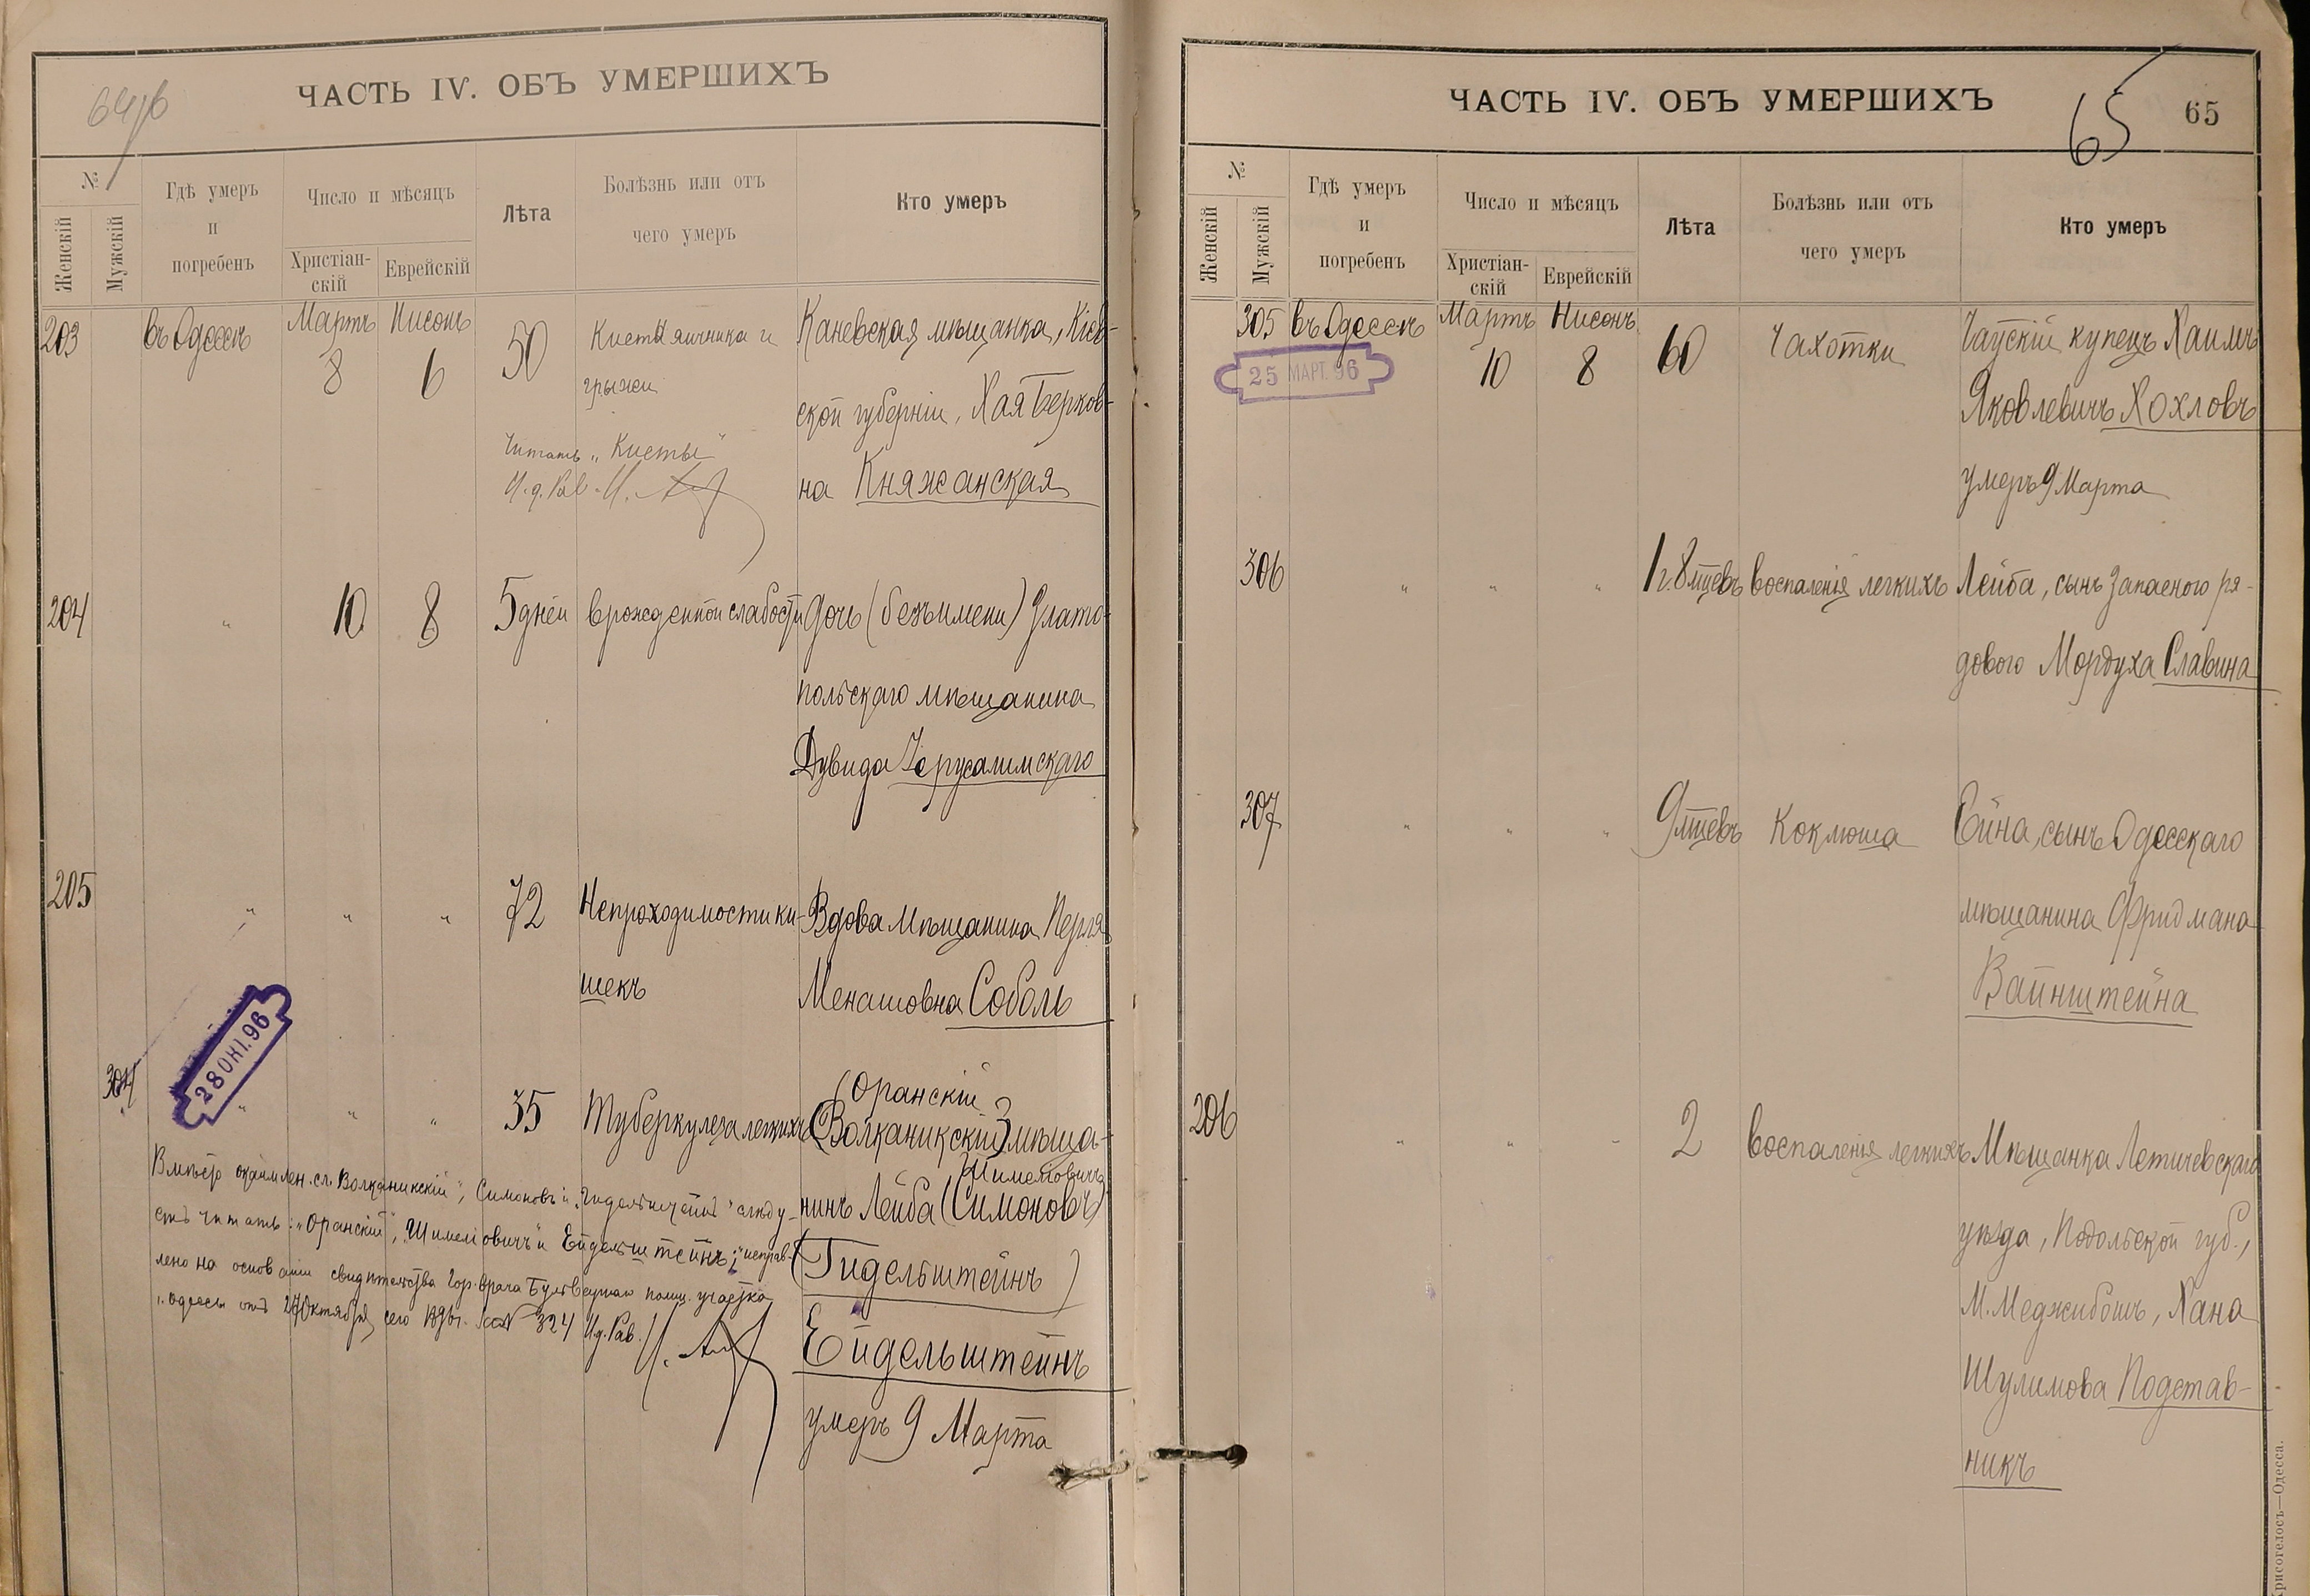 64об
ЧАСТЬ IV. ОБЪ УМЕРШИХЪ
№
Женскій
Мужскій
Гдѣ умеръ
и
погребенъ
Число и мѣсяцъ
Христіан-
скій
Еврейскій
Лѣта
Болѣзнь или отъ
чего умеръ
Кто умеръ
203 въ Одессѣ Мартъ 8 Нисонъ 6 50 Кисты яичника и Каневская мѣщанка, Кіев-
грыжи
ской губерніи, Хая Берков-
Читать „Кисты"
И.д.Рав.
на Княжанская
204 " 10 8 5 дней врожденной слабости Дочь (безъ имени) Злато-
польскаго мѣщанина
Дувида Іерусалимскаго
205 " " " 72 Непроходимости ки- Вдова мѣщанина Перля
шекъ Менашовна Соболь
28 ОКТ. 96
Оранскій
304 " " " 35 Туберкулеза легкихъ (Волканикскій) мѣща-
Шимеліовичъ
нинъ Лейба (Симоновъ)
(Гидельштейнъ)
Ейдельштейнъ
умеръ 9 Марта
Вмѣсто окаймлен. сл. „Волканикскій", Симоновъ" и „Гидельштейнъ" слѣду-
етъ читать: „Оранскій", „Шимеліовичъ" и Ейдельштейнъ; исправ-
лено на основаніи свидѣтельства Гор. врача Бульварнаго полиц. участка
г. Одессы отъ 27 Октября сего 1896 г. за № 324 И.д. Рав.
ЧАСТЬ IV. ОБЪ УМЕРШИХЪ
65
65
№
Женскій
Мужскій
Гдѣ умеръ
и
погребенъ
Число и мѣсяцъ
Христіан-
скій
Еврейскій
Лѣта
Болѣзнь или отъ
чего умеръ
Кто умеръ
305 въ Одессѣ Мартъ 10 Нисонъ 8 60 Чахотки Чаускій купецъ Хаимъ
25 МАРТ. 96
Яковлевичъ Хохловъ
умеръ 9 Марта
306 " " " 1 г. 8 мцевъ воспаленія легкихъ Лейба, сынъ запасного ря-
дового Мордуха Славина
307 " " " 9 мцевъ Коклюша Ейна, сынъ Одесскаго
мѣщанина Фридмана
Вайнштейна
206 " " " 2 воспаленія легкихъ Мѣщанка Летичевскаго
уѣзда, Подольской губ.,
М. Меджибожъ, Хана
Шулимова Подстав-
никъ